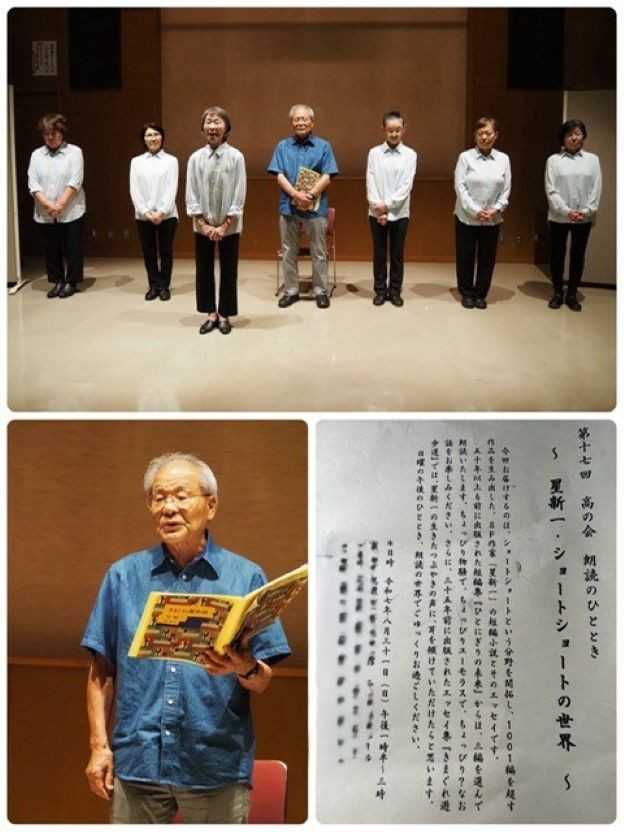 第十七回　高の会　朗読のひととき
～　星新一・ショートショートの世界　～
今回お届けするのは、ショートショートという分野を開拓し、１００１編を越す
作品を生み出した、ＳＦ作家「星新一」の短編小説とそのエッセイです。
五十年以上も前に出版された短編集『ひとにぎりの未来』からは、三編を選んで
朗読いたします。ちょっぴり物騒で、ちょっぴりユーモラスで、ちょっぴり？なお
話をお楽しみください。さらに、三十五年前に出版されたエッセイ集『きまぐれ遊
歩道』では、星新一の生きたつぶやきの声に、耳を傾けていただけたらと思います。
日曜の午後のひととき、朗読の世界でごゆっくりお過ごしください。
日時　令和七年八月三十一日（日）午後一時半～三時